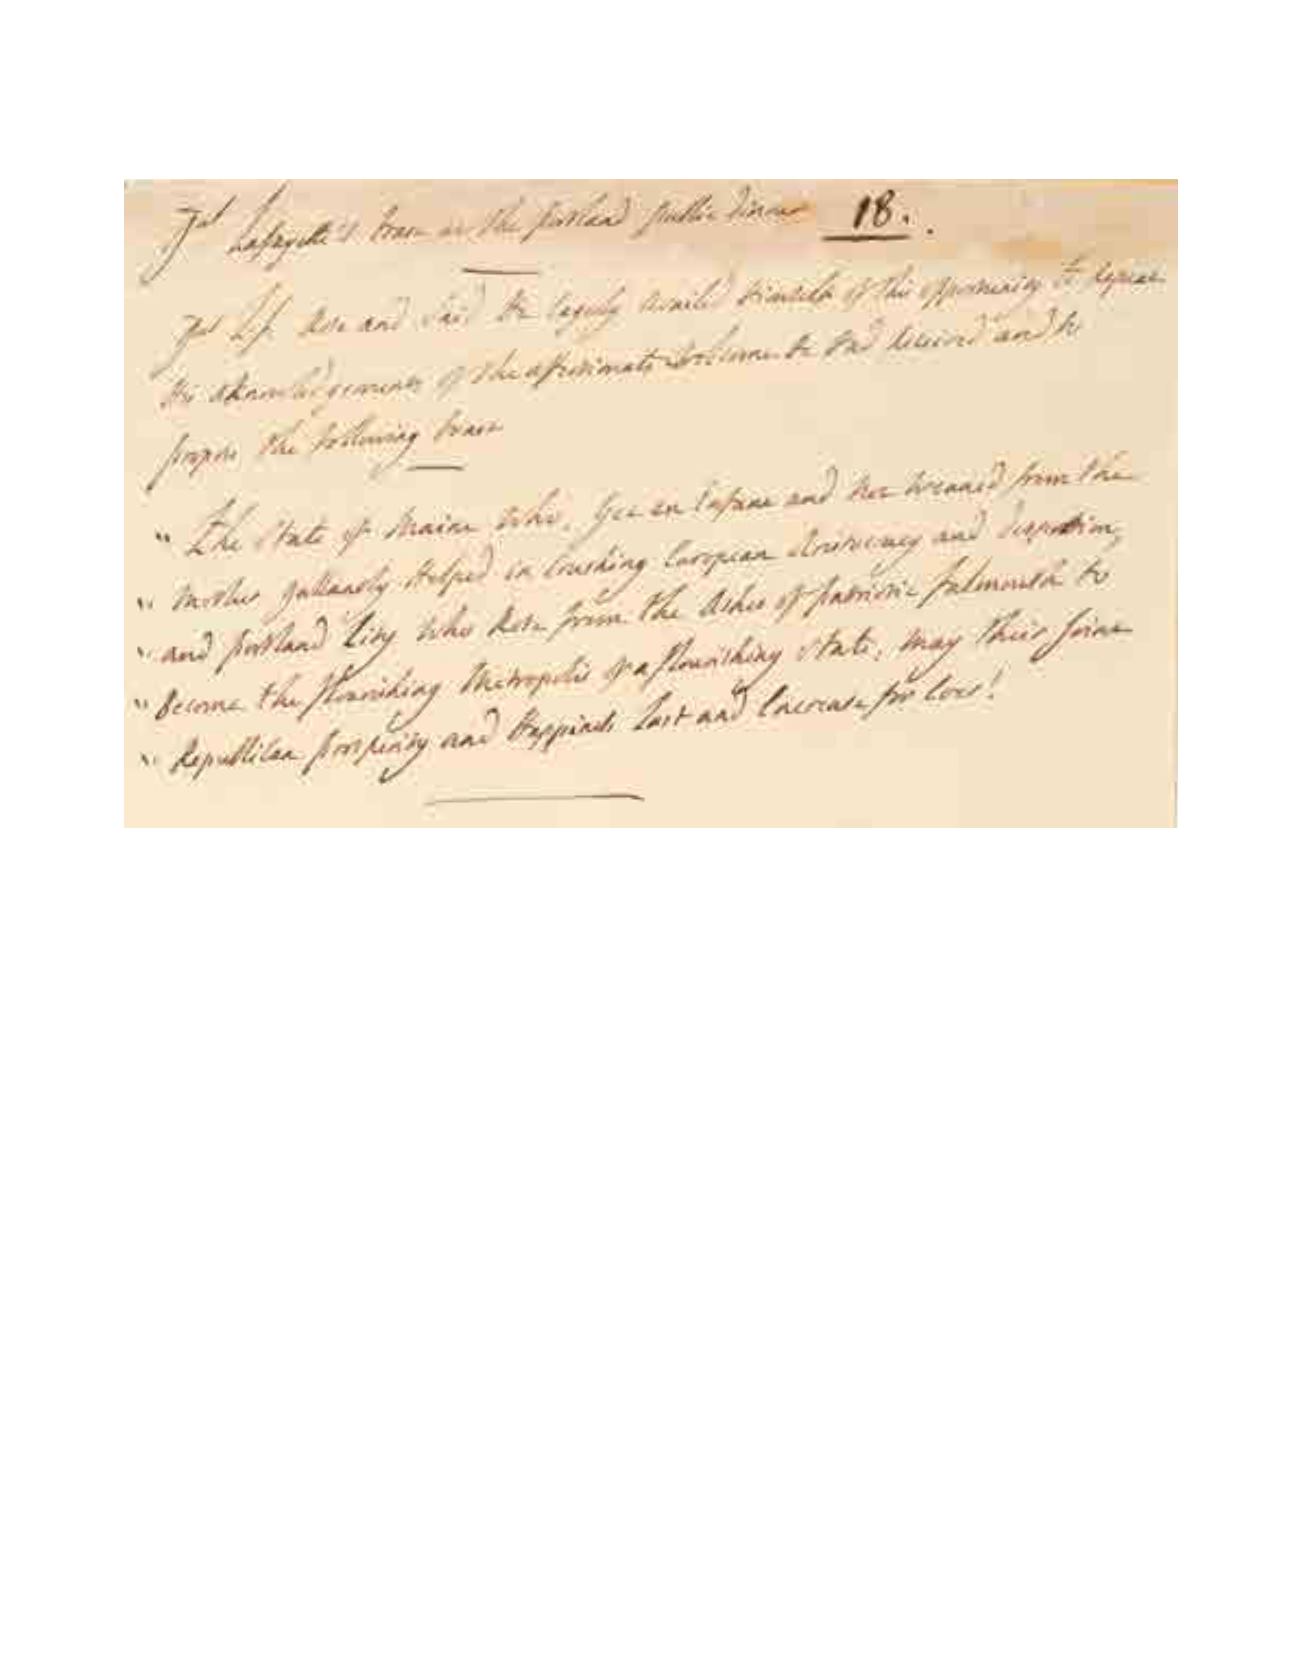 Gal Lafayette's toast at the portland public dinner 18.
Gal Laf. Rose and Said He Eagerly availed Himself of this opportunity to Repeat
His aknowledgements of the affectionate Wellcome He Had Received and to
propose the following toast
" The State of Maine Who, Yet an Infant and not Weaned from the
" Mother gallantly Helped in Crushing European Aristocracy and despotism,
" and portland City Who Rose from the Ashes of patriotic falmouth to
" Become the flourishing Metropolis of a flourishing State, May their joint
" Republican prosperity and Happiness last and Encrease for Ever!